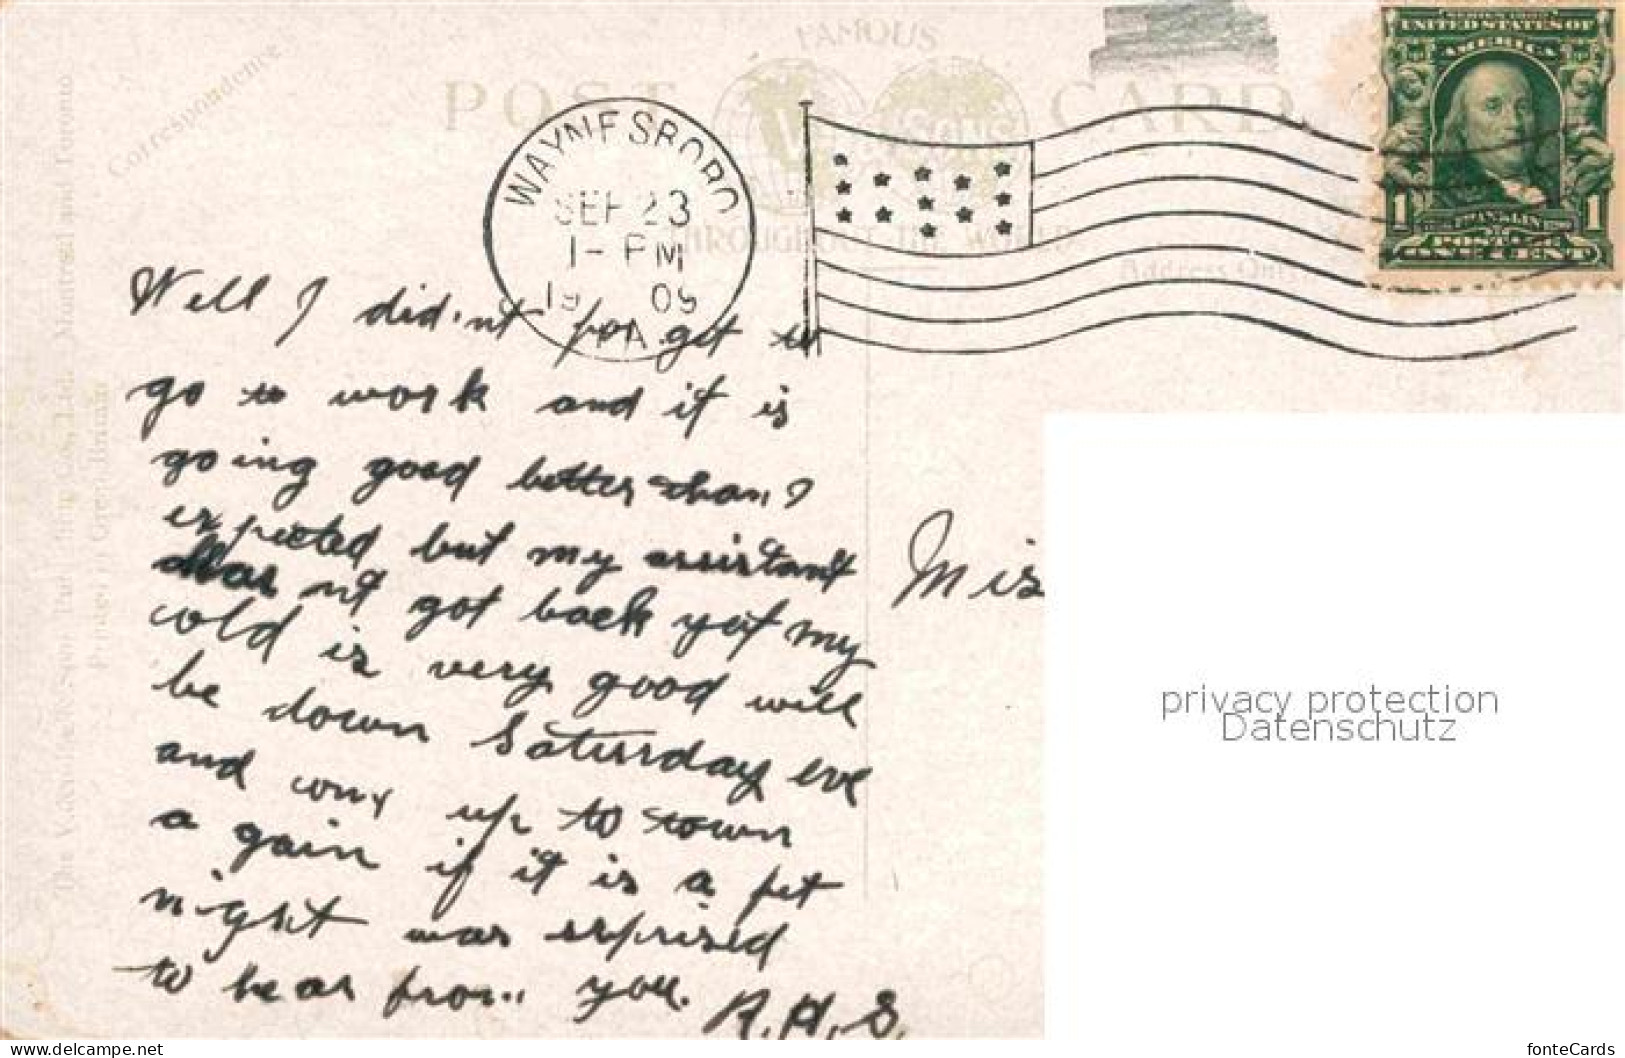 Correspondence.
FAMOUS
POST CARD.
& Sons
THROUGHOUT THE WORLD.
Address Only
WAYNESBORO
SEP 23
1- PM
19 09
PA
SERIES 1902
UNITED STATES OF
AMERICA
1 FRANKLIN 1
POSTAGE
ONE CENT
Well I did.nt for get to
go to work and it is
going good better than I
expected but my assistant
has nt got back yet my
cold is very good will
be down Saturday eve
and come up to town
a gain if it is a fit
night was surprised
to hear from you.
R.H.S.
Mis
The Valentine & Sons Publishing Co., Ltd., Montreal and Toronto
Printed in Great Britain
privacy protection
Datenschutz
https://www.delcampe.net
fonteCards